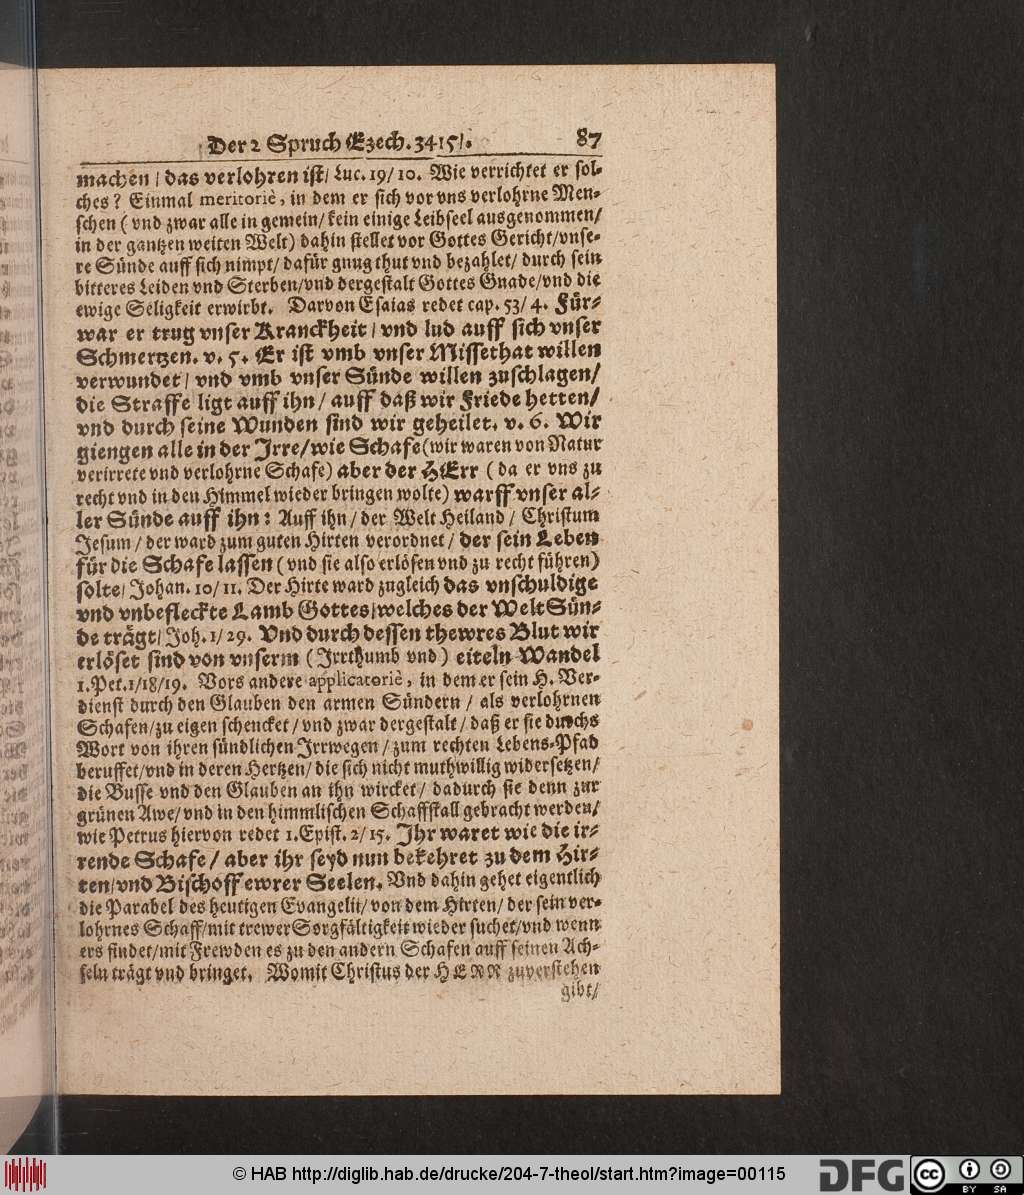 Der 2 Spruch Ezech. 3415/. 87
machen / das verlohren ist / Luc. 19/10. Wie verrichtet er sol-
ches? Einmal meritoriè, in dem er sich vor vns verlohrne Men-
schen (vnd zwar alle in gemein/ kein einige Leibseel ausgenommen/
in der gantzen weiten Welt) dahin stellet vor Gottes Gericht/vnse-
re Sünde auff sich nimpt/ dafür gnug thut vnd bezahlet/ durch sein
bitteres Leiden vnd Sterben/vnd dergestalt Gottes Gnade/vnd die
ewige Seligkeit erwirbt. Darvon Esaias redet cap. 53/4. Für-
war er trug vnser Kranckheit / vnd lud auff sich vnser
Schmertzen. v. 5. Er ist vmb vnser Missethat willen
verwundet / vnd vmb vnser Sünde willen zuschlagen/
die Straffe ligt auff ihn / auff daß wir Friede hetten/
vnd durch seine Wunden sind wir geheilet. v. 6. Wir
giengen alle in der Irre/wie Schafe (wir waren von Natur
verirrete vnd verlohrne Schafe) aber der HErr (da er vns zu
recht vnd in den Himmel wieder bringen wolte) warff vnser al-
ler Sünde auff ihn: Auff ihn / der Welt Heiland / Christum
Jesum / der ward zum guten Hirten verordnet / der sein Leben
für die Schafe lassen (vnd sie also erlösen vnd zu recht führen)
solte/ Johan. 10/11. Der Hirte ward zugleich das vnschuldige
vnd vnbefleckte Lamb Gottes/welches der Welt Sün-
de trägt/ Joh. 1/29. Vnd durch dessen thewres Blut wir
erlöset sind von vnserm (Irrthumb vnd) eiteln Wandel
1. Pet. 1/18/19. Vors andere applicatoriè, in dem er sein H. Ver-
dienst durch den Glauben den armen Sündern / als verlohrnen
Schafen/zu eigen schencket / vnd zwar dergestalt / daß er sie durchs
Wort von ihren sündlichen Irrwegen / zum rechten Lebens-Pfad
beruffet/vnd in deren Hertzen/ die sich nicht muthwillig widersetzen/
die Busse vnd den Glauben an ihn wircket / dadurch sie denn zur
grünen Awe/ vnd in den himmlischen Schaffstall gebracht werden/
wie Petrus hiervon redet 1. Epist. 2/15. Ihr waret wie die ir-
rende Schafe / aber ihr seyd nun bekehret zu dem Hir-
ten/vnd Bischoff ewrer Seelen. Vnd dahin gehet eigentlich
die Parabel des heutigen Evangelii/ von dem Hirten/ der sein ver-
lohrnes Schaff/mit trewer Sorgfältigkeit wieder suchet/vnd wenn
ers findet/mit Frewden es zu den andern Schafen auff seinen Ach-
seln trägt vnd bringet. Womit Christus der HERR zuverstehen
gibt/
© HAB http://diglib.hab.de/drucke/204-7-theol/start.htm?image=00115
DFG
cc BY SA